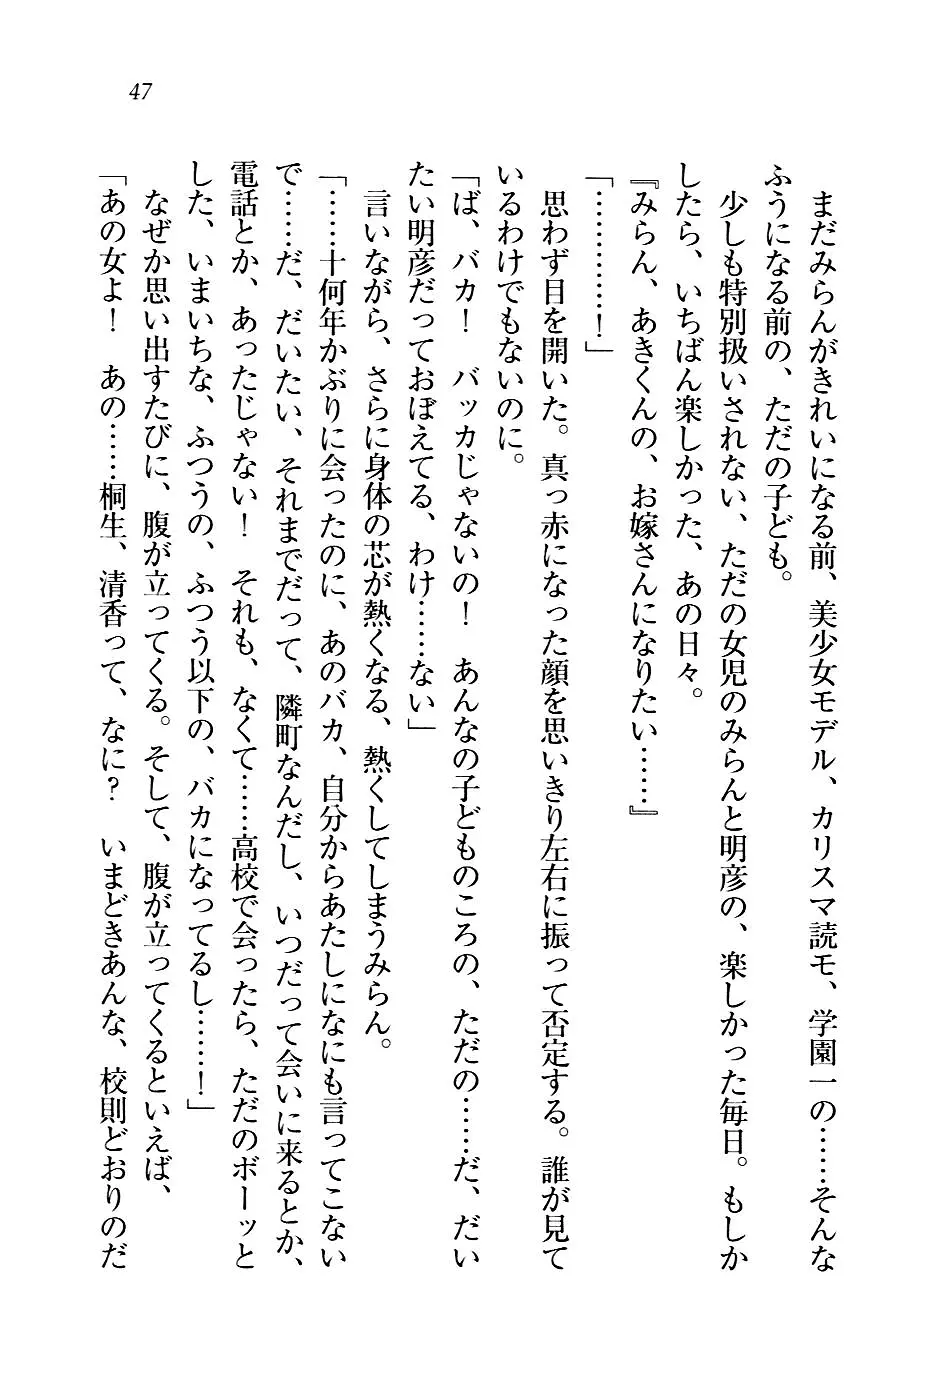 47
　まだみらんがきれいになる前、美少女モデル、カリスマ読モ、学園一の……そんな
ふうになる前の、ただの子ども。
　少しも特別扱いされない、ただの女児のみらんと明彦の、楽しかった毎日。もしか
したら、いちばん楽しかった、あの日々。
『みらん、あきくんの、お嫁さんになりたい……』
「…………！」
　思わず目を開いた。真っ赤になった顔を思いきり左右に振って否定する。誰が見て
いるわけでもないのに。
「ば、バカ！　バッカじゃないの！　あんなの子どものころの、ただの……だ、だい
たい明彦だっておぼえてる、わけ……ない」
　言いながら、さらに身体の芯が熱くなる、熱くしてしまうみらん。
「……十何年かぶりに会ったのに、あのバカ、自分からあたしになにも言ってこない
で……だ、だいたい、それまでだって、隣町なんだし、いつだって会いに来るとか、
電話とか、あったじゃない！　それも、なくて……高校で会ったら、ただのボーッと
した、いまいちな、ふつうの、ふつう以下の、バカになってるし……！」
　なぜか思い出すたびに、腹が立ってくる。そして、腹が立ってくるといえば、
「あの女よ！　あの……桐生、清香って、なに？　いまどきあんな、校則どおりのだ